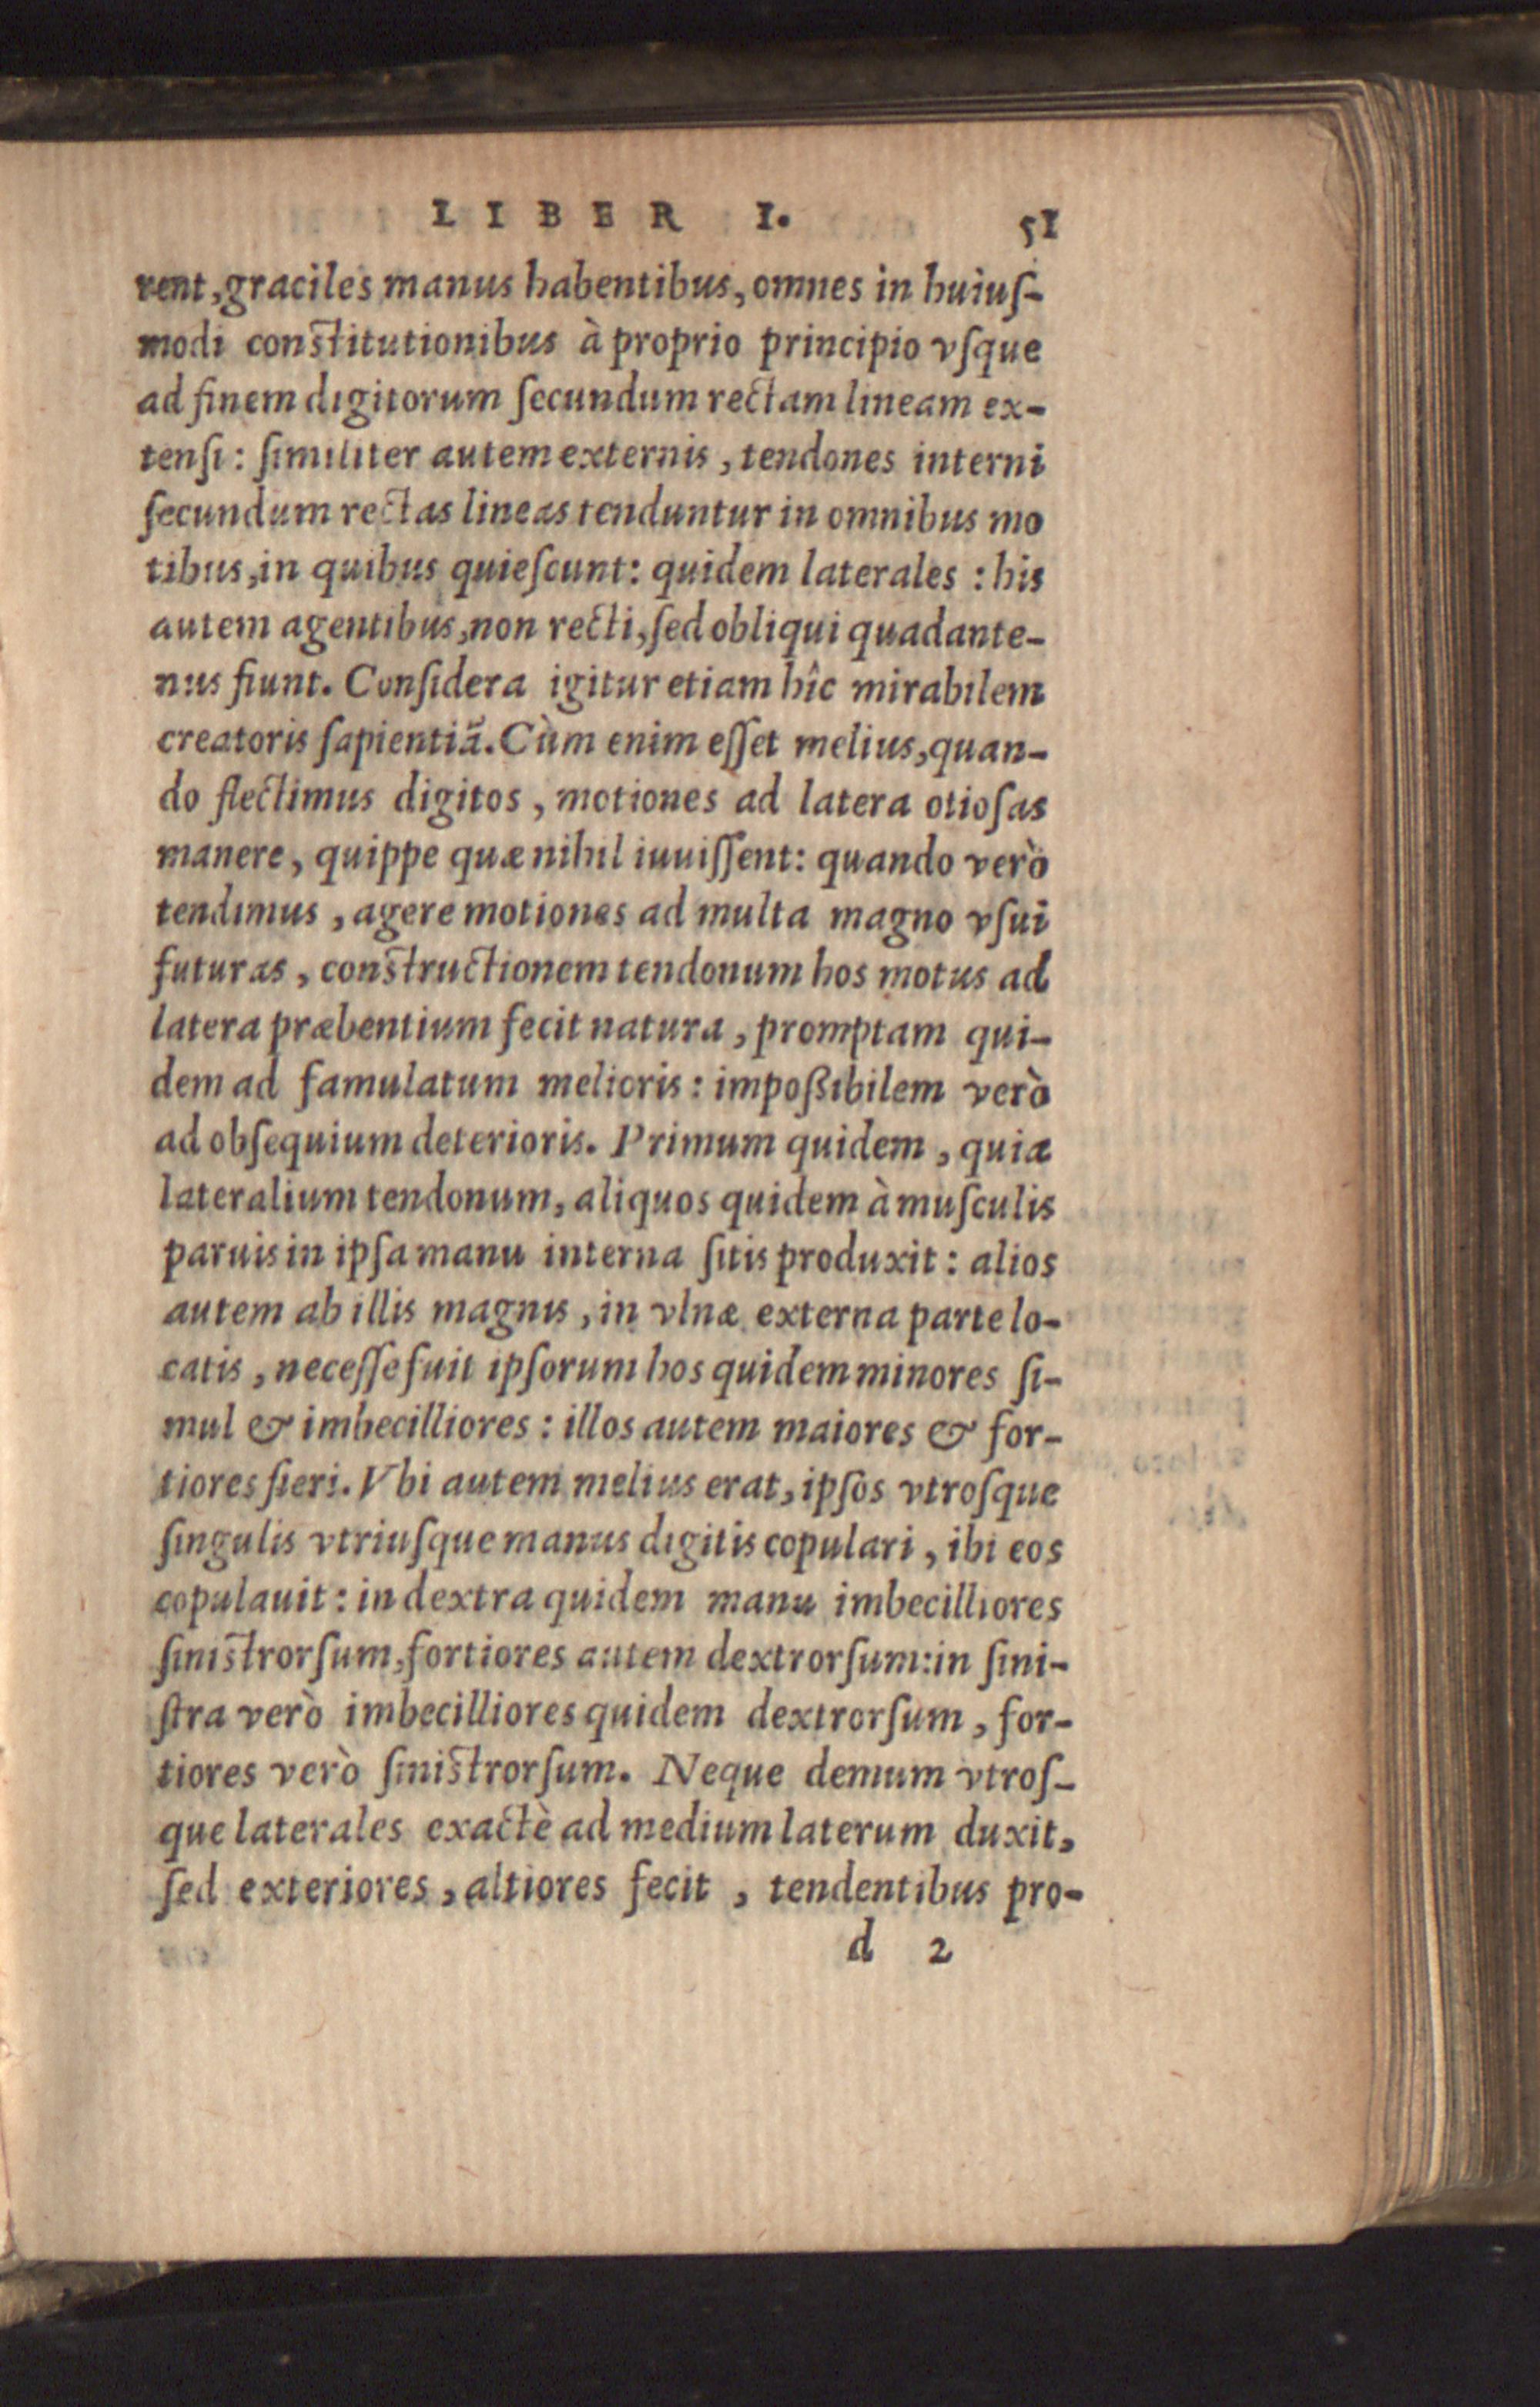 LIBER I. 51
rent, graciles manus habentibus, omnes in huiuſ-
modi conſtitutionibus à proprio principio vſque
ad finem digitorum ſecundum rectam lineam ex-
tenſi: ſimiliter autem externis, tendones interni
ſecundum rectas lineas tenduntur in omnibus mo
tibus, in quibus quieſcunt: quidem laterales: his
autem agentibus, non recti, ſed obliqui quadante-
nus fiunt. Conſidera igitur etiam hîc mirabilem
creatoris ſapientiã. Cùm enim eſſet melius, quan-
do flectimus digitos, motiones ad latera otioſas
manere, quippe quæ nihil iuuiſſent: quando verò
tendimus, agere motiones ad multa magno vſui
futuras, conſtructionem tendonum hos motus ad
latera præbentium fecit natura, promptam qui-
dem ad famulatum melioris: impoßibilem verò
ad obſequium deterioris. Primum quidem, quia
lateralium tendonum, aliquos quidem à muſculis
paruis in ipſa manu interna ſitis produxit: alios
autem ab illis magnis, in vlnæ externa parte lo-
catis, neceſſe fuit ipſorum hos quidem minores ſi-
mul & imbecilliores: illos autem maiores & for-
tiores fieri. Vbi autem melius erat, ipſos vtroſque
ſingulis vtriuſque manus digitis copulari, ibi eos
copulauit: in dextra quidem manu imbecilliores
ſiniſtrorſum, fortiores autem dextrorſum: in ſini-
ſtra verò imbecilliores quidem dextrorſum, for-
tiores verò ſiniſtrorſum. Neque demum vtroſ-
que laterales exactè ad medium laterum duxit,
ſed exteriores, altiores fecit, tendentibus pro-
d 2